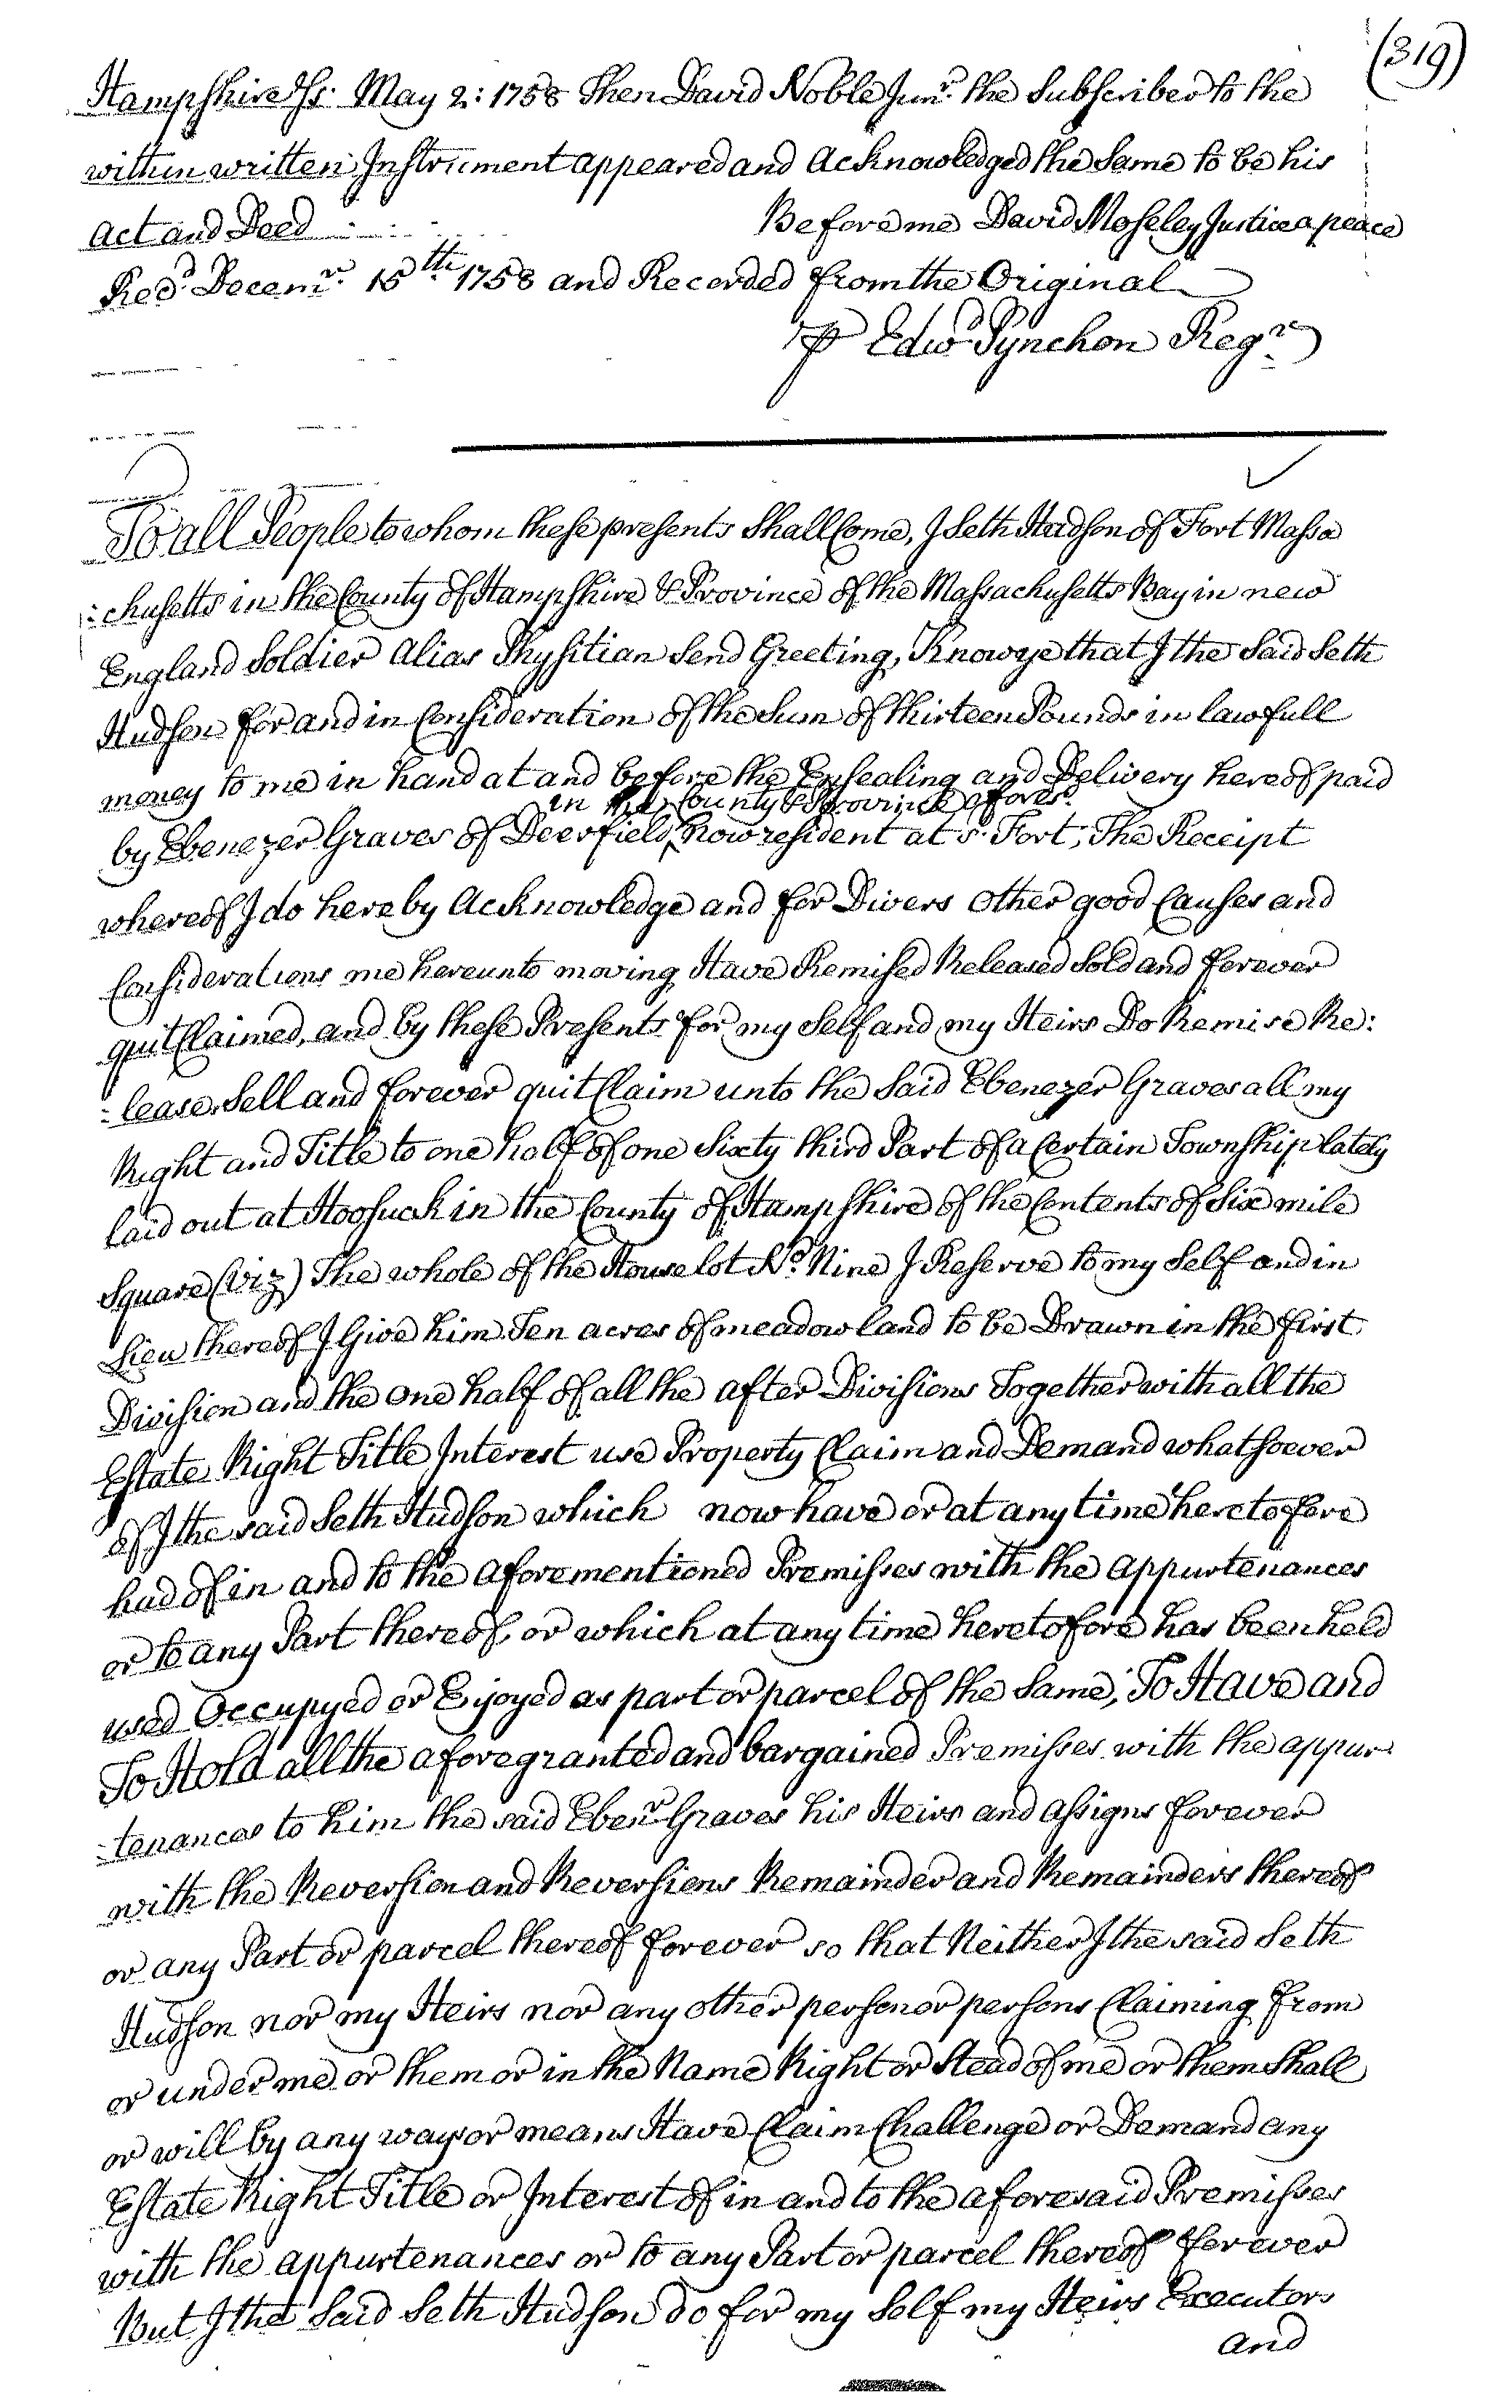 (319)
Hampshire Ss. May 2: 1758 Then David Noble Junr. the Subscriber to the
within written Instrument appeared and Acknowledged the Same to be his
Act and Deed Before me David Moseley Justice a peace
Recd. Decemr. 15th. 1758 and Recorded from the Original
P Edwd Pynchon Regr
To all People to whom these presents Shall Come, I Seth Hudson of Fort Massa
:chusetts in the County of Hampshire & Province of the Massachusetts Bay in new
England Soldier Alias Physitian Send Greeting, Know ye that I the Said Seth
Hudson for and in Consideration of the Sum of thirteen Pounds in lawfull
money to me in hand at and before the Ensealing and Delivery hereof paid
in the County & Province aforesd.
by Ebenezer Graves of Deerfield ^ now resident at sd. Fort, The Receipt
whereof I do hereby Acknowledge and for Divers Other good Causes and
Considerations me hereunto moving, Have Remised Released Sold and forever
quit Claimed, and by these Presents for my Self and my Heirs Do Remise Re:
:lease Sell and forever quit Claim unto the Said Ebenezer Graves all my
Right and Title to one half of one Sixty third Part of a Certain Township lately
laid out at Hoosuck in the County of Hampshire of the Contents of Six mile
Square (Viz) The whole of the House lot No. Nine I Reserve to my Self and in
Lieu thereof I Give him Ten acres of meadow land to be Drawn in the first
Division and the one half of all the after Divisions Together with all the
Estate Right Title Interest use Property Claim and Demand whatsoever
of I the said Seth Hudson which now have or at any time heretofore
had of in and to the aforementioned Premisses with the appurtenances
or to any Part thereof, or which at any time heretofore has been held
used Occupyed or Ejoyed as part or parcel of the Same, To Have and
To Hold all the aforegranted and bargained Premisses with the appur
:tenances to him the said Ebenr Graves his Heirs and assigns forever
with the Reversion and Reversions Remainder and Remainders thereof
or any Part or parcel thereof forever so that Neither I the said Seth
Hudson nor my Heirs nor any other person or persons Claiming from
or under me or them or in the Name Right or Stead of me or them Shall
or will by any way or means Have Claim Challenge or Demand any
Estate Right Title or Interest of in and to the aforesaid Premisses
with the appurtenances or to any Part or parcel thereof forever
But I the Said Seth Hudson do for my Self my Heirs Executors
and